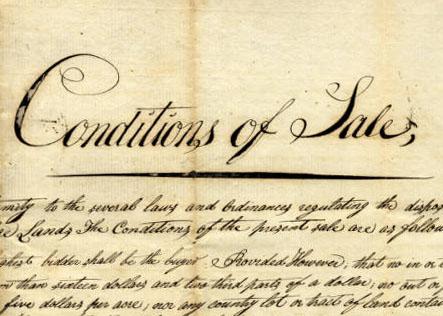 Conditions of Sale,
to the several laws and Ordinances regulating the
Lands, The Conditions of the present sale are as
bidder shall be the buyer. Provided However, that no in
than sixteen dollars and two third parts of a dollar; no out
five dollars per acre; nor any county lot or tract of land